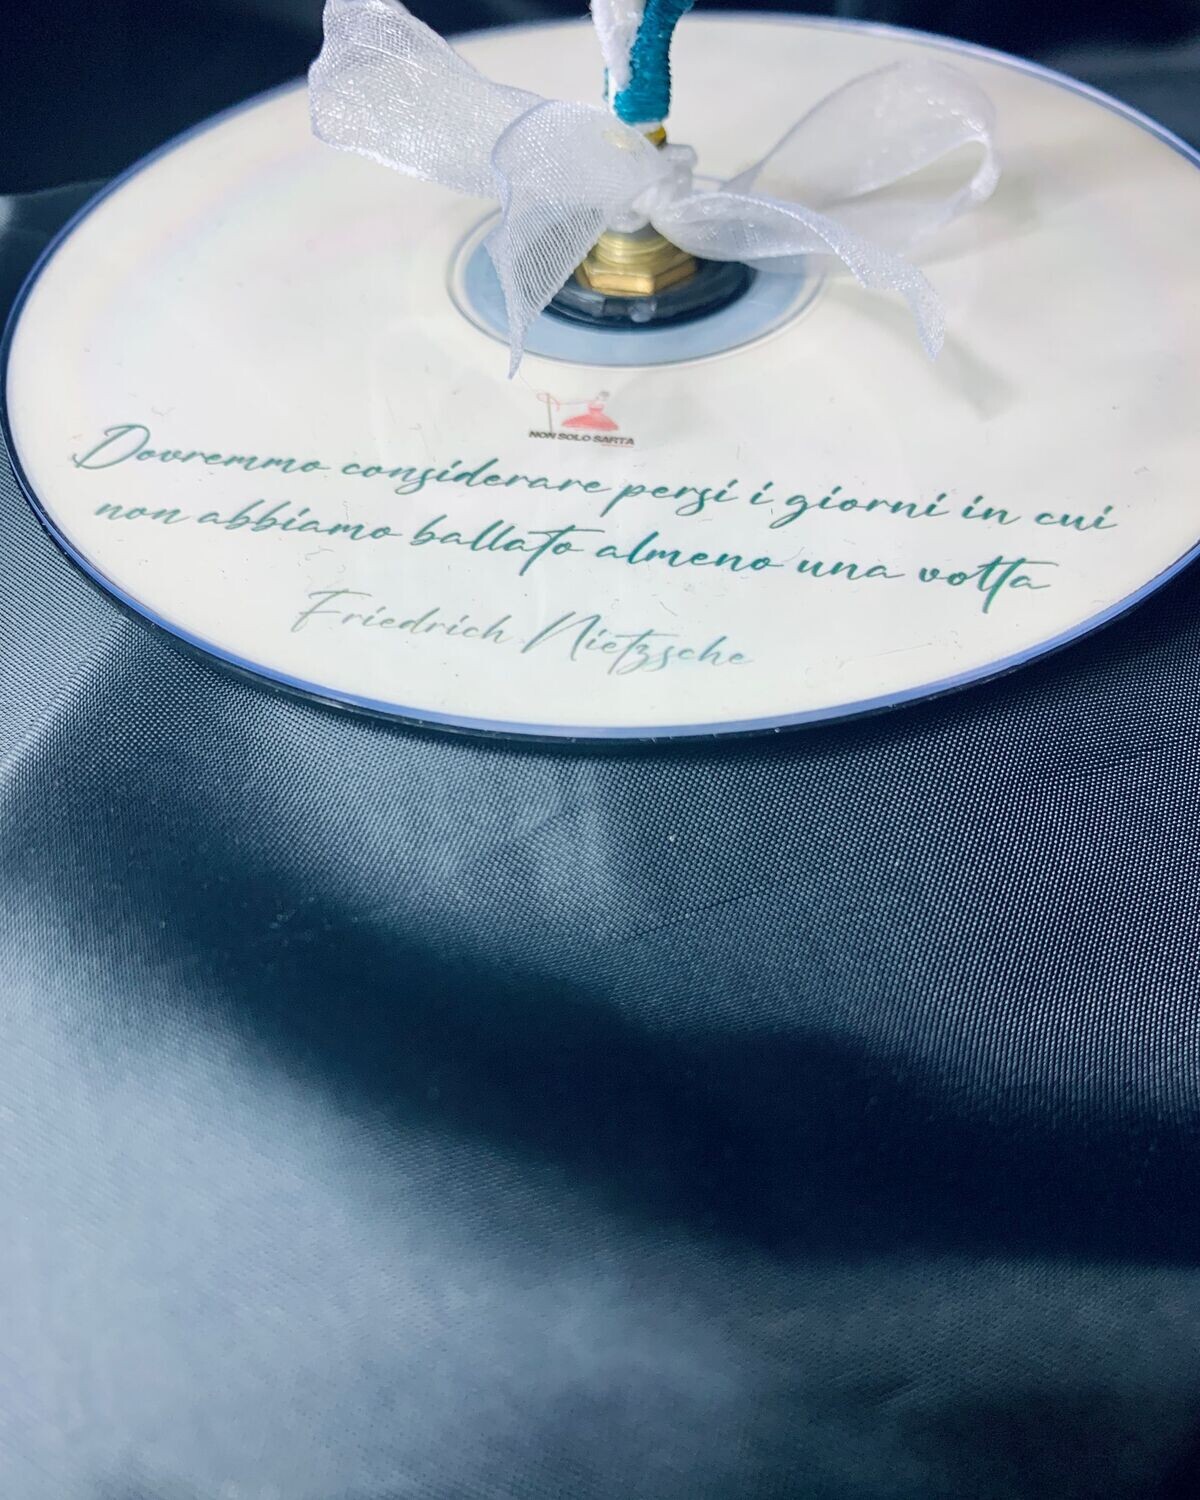 NON SOLO SARTA
Dovremmo considerare persi i giorni in cui
non abbiamo ballato almeno una volta
Friedrich Nietzsche